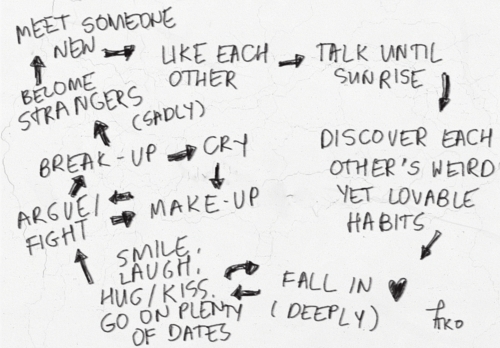 MEET SOMEONE
NEW
LIKE EACH
OTHER
TALK UNTIL
SUNRISE
DISCOVER EACH
OTHER'S WEIRD
YET LOVABLE
HABITS
FALL IN ♥
(DEEPLY)
SMILE,
LAUGH,
HUG/KISS.
GO ON PLENTY
OF DATES
ARGUE/
FIGHT
MAKE-UP
BREAK-UP
CRY
BECOME
STRANGERS
(SADLY)